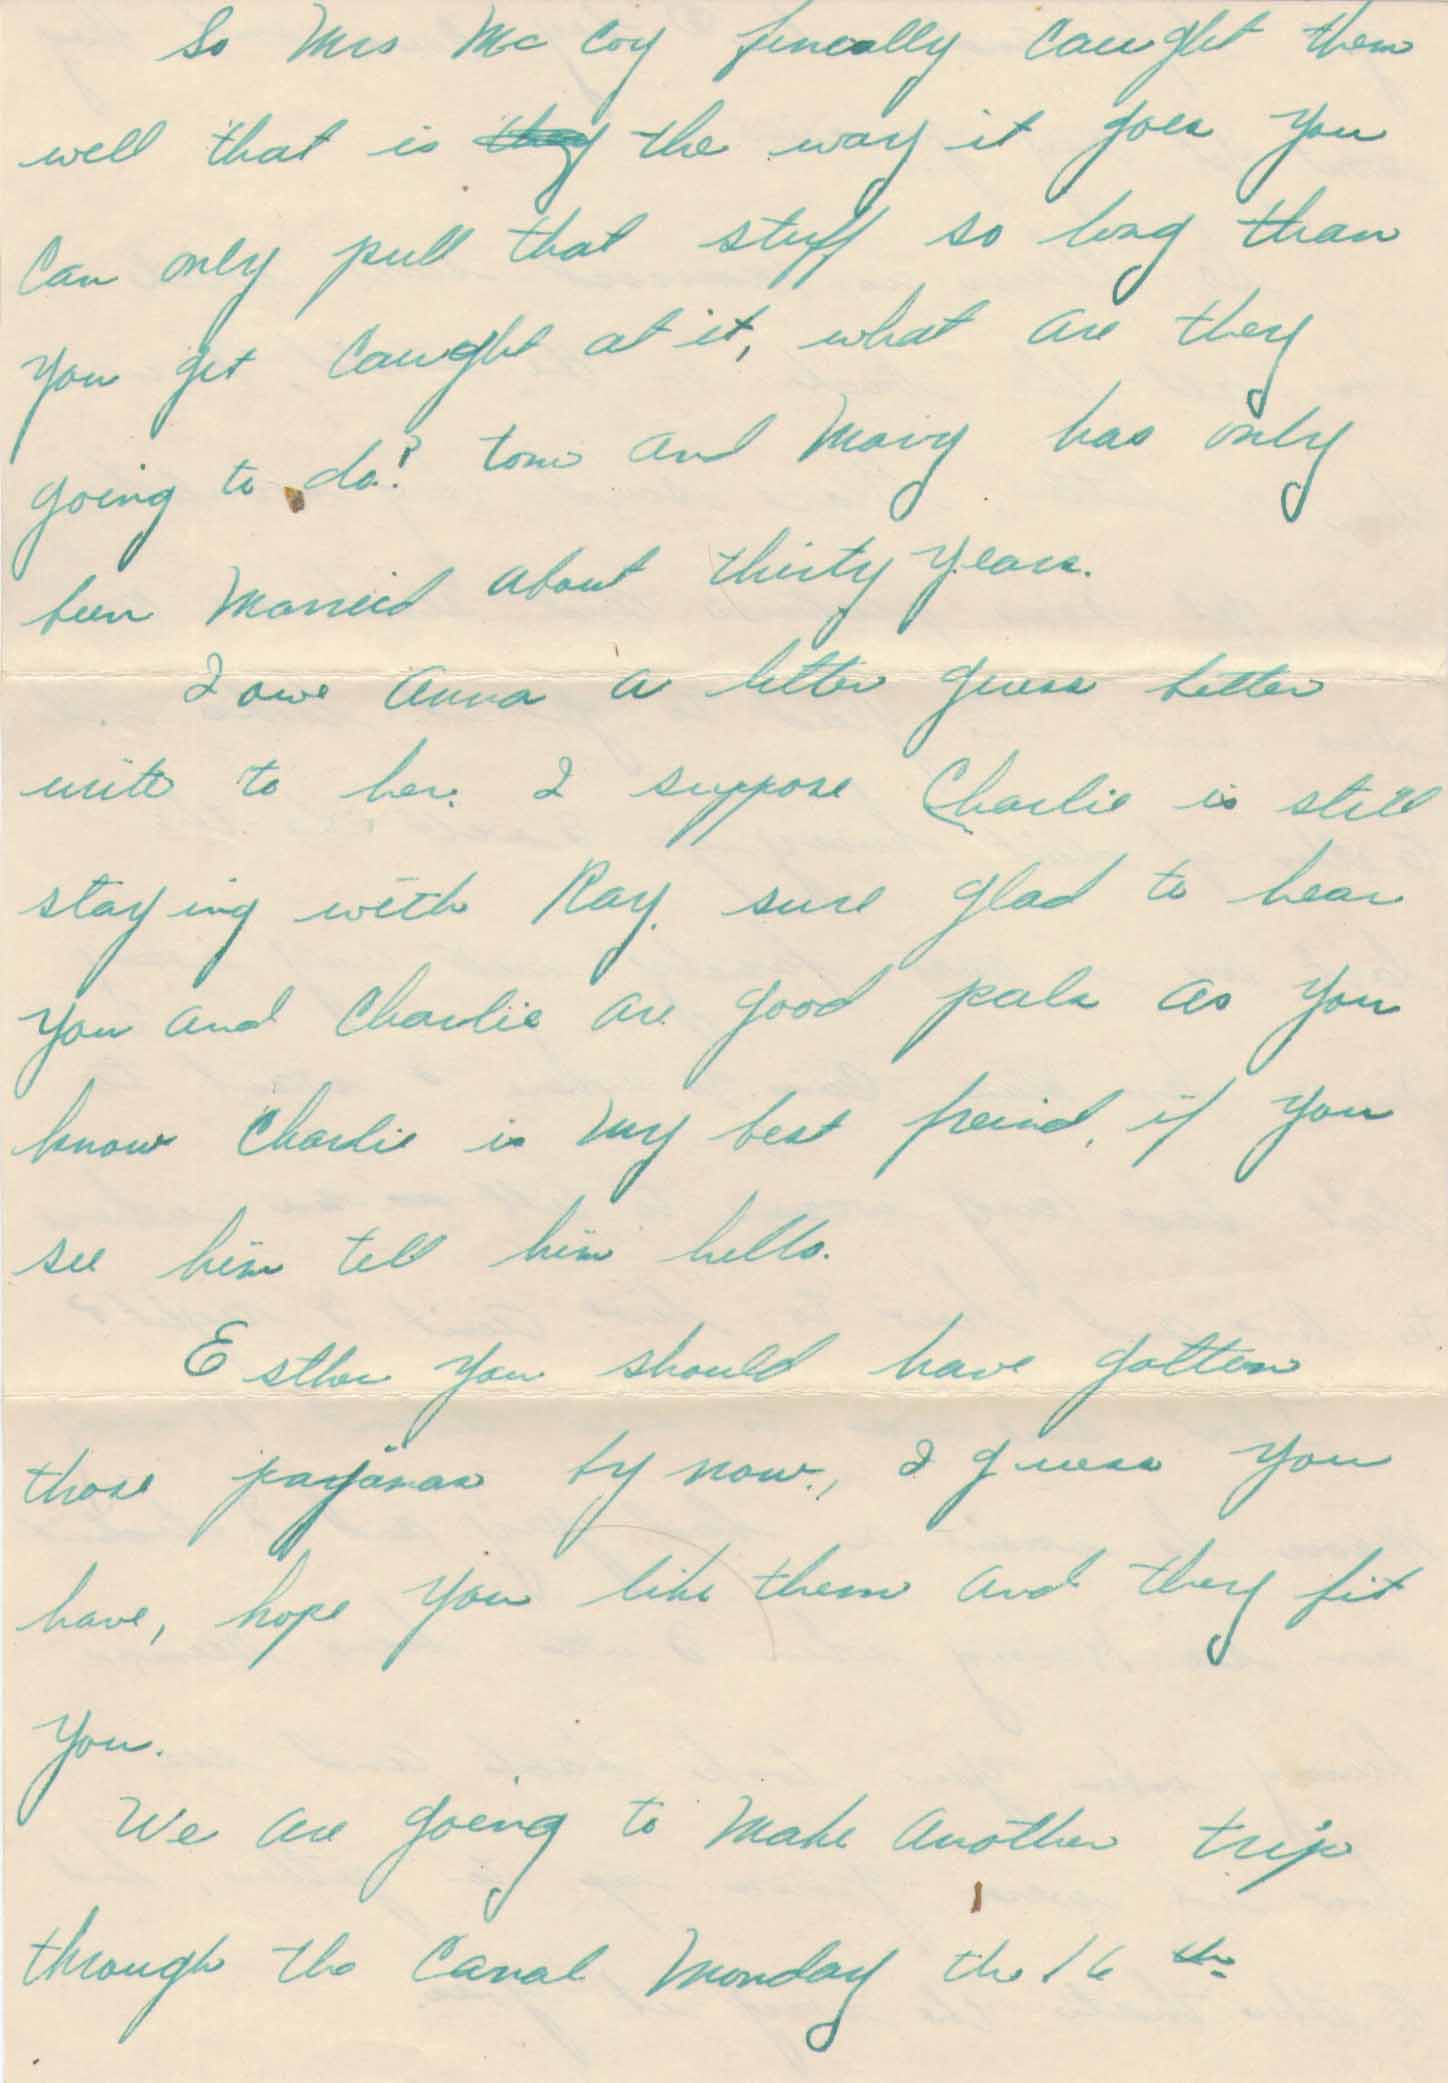 So Mrs McCoy fineally caught them
well that is they the way it goes you
can only pull that stuff so long than
you get caught at it, what are they
going to do? tom and Mary has only
been Married about thirty years.
I owe Anna a letter guess better
write to her. I suppose Charlie is still
staying with Ray. sure glad to hear
you and Charlie are good pals as you
know Charlie is my best freind, if you
see him tell him hello.
Esther you should have gotten
those pajamas by now, I guess you
have, hope you like them and they fit
you.
We are going to make another trip
through the Canal Monday the 16 th